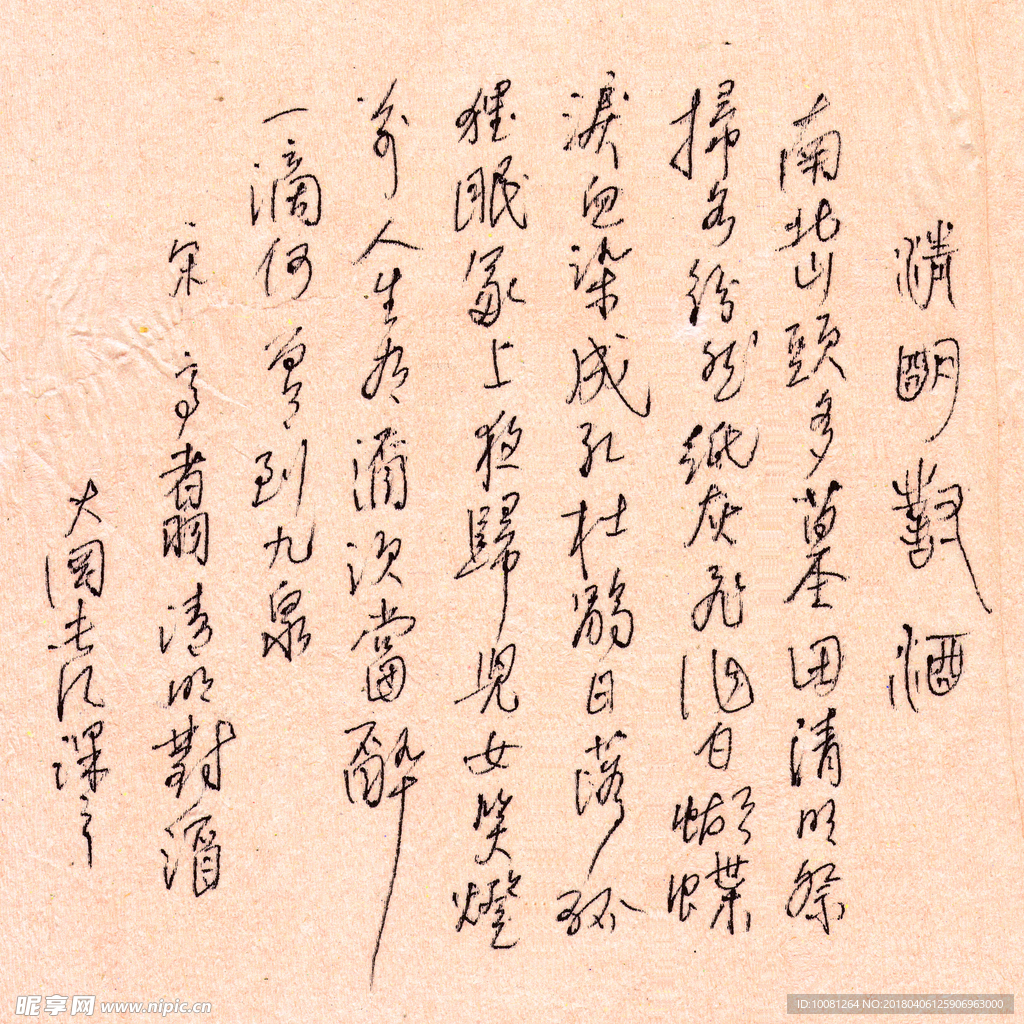 清明對酒
南北山頭多墓田清明祭
掃各紛然紙灰飛作白蝴蝶
淚血染成紅杜鵑日落狐
狸眠冢上夜歸兒女笑燈
前人生有酒須當醉
一滴何曾到九泉
宋 高翥清明對酒
大國
昵享网 www.nipic.cn
ID:10081264 NO:20180406125906963000